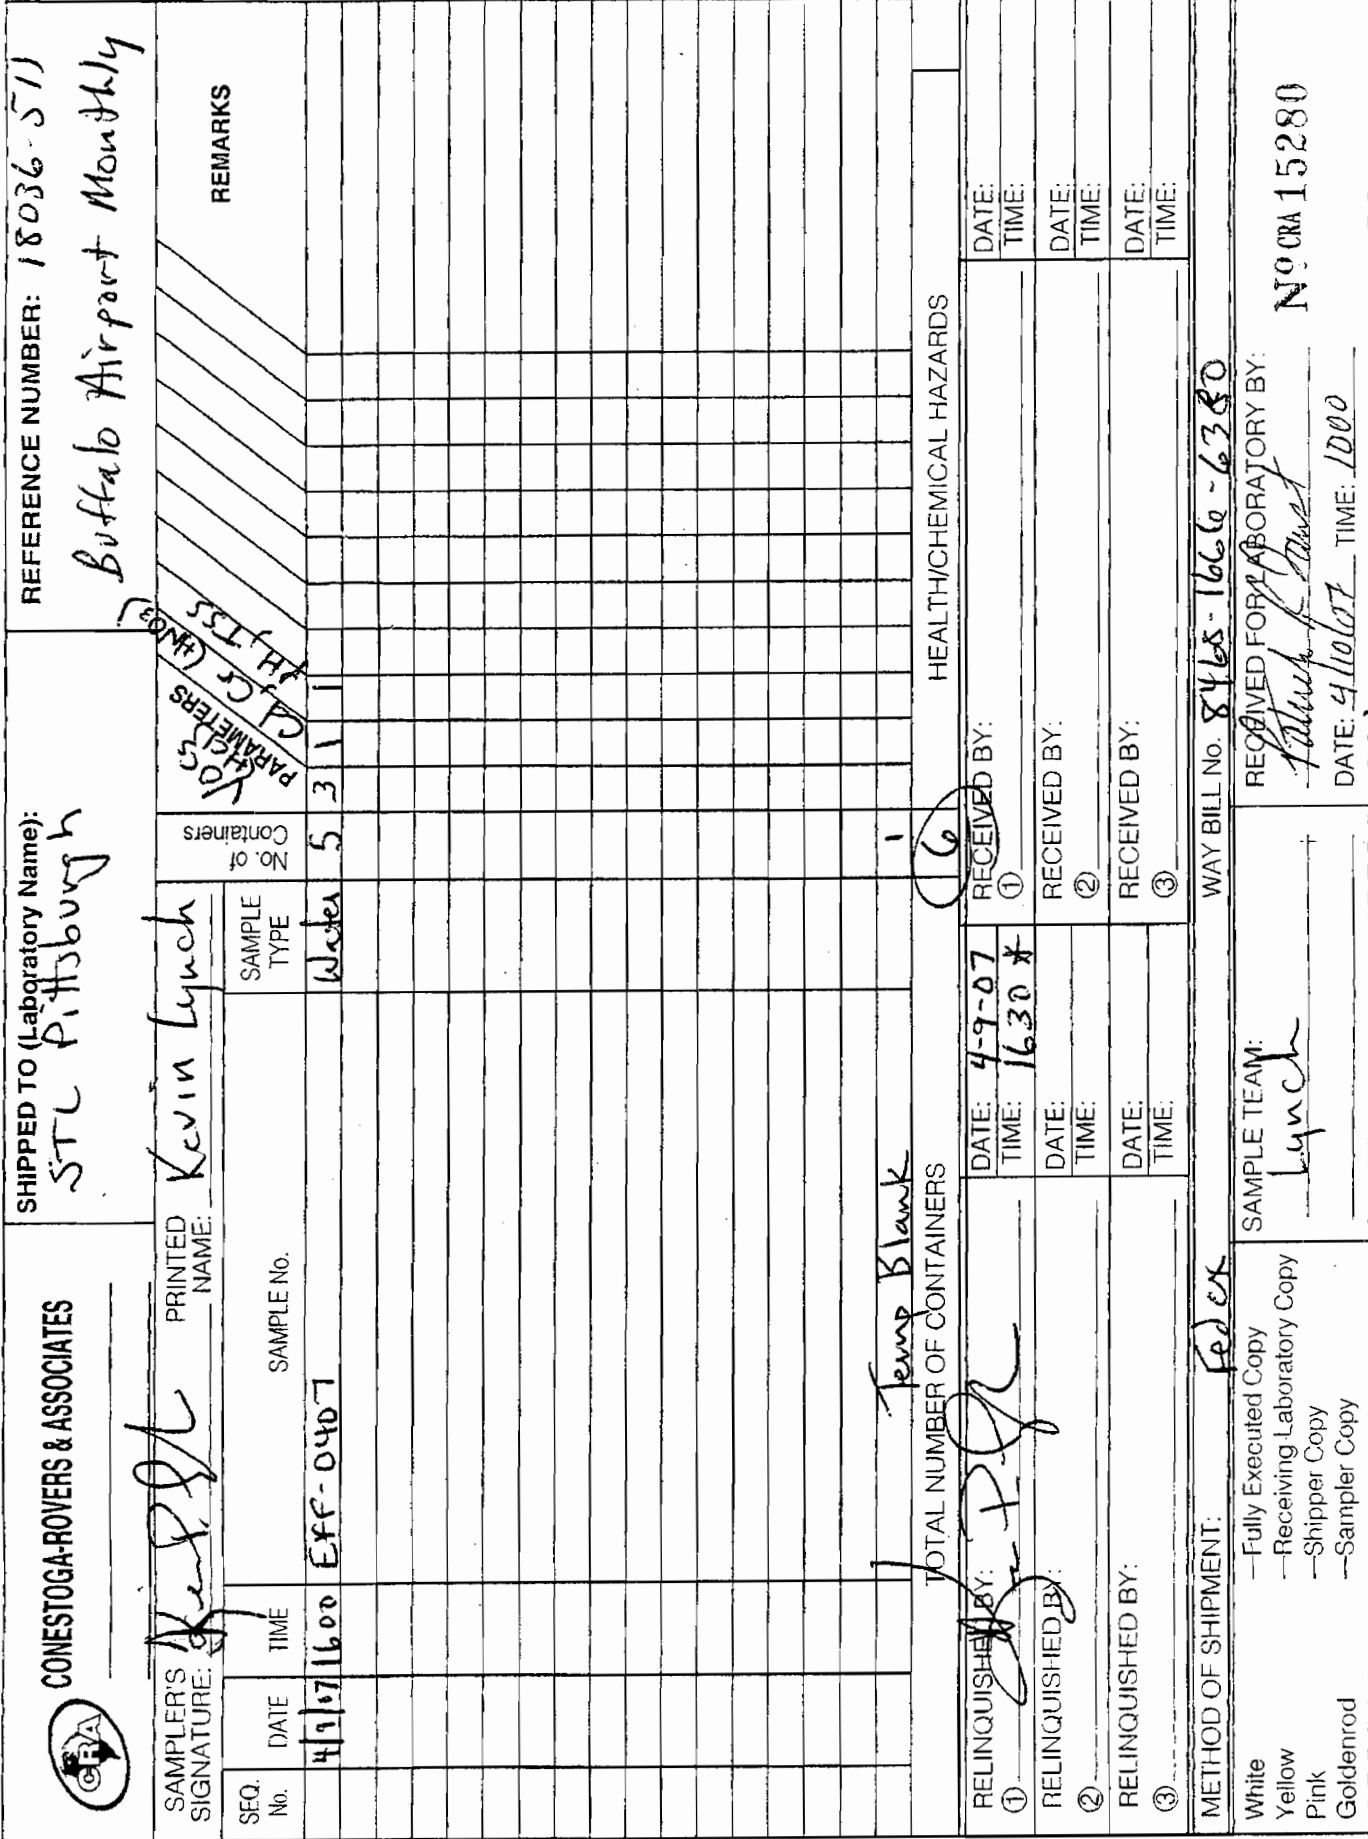 CRA
CONESTOGA-ROVERS & ASSOCIATES
SHIPPED TO (Laboratory Name):
STL Pittsburgh
REFERENCE NUMBER: 18036-511
Buffalo Airport Monthly
SAMPLER'S SIGNATURE:
PRINTED NAME: Kevin Lynch
No. of Containers
PARAMETERS
VOCs (HCL)
(HNO3)
pH, TSS
REMARKS
SEQ. No.
DATE
TIME
SAMPLE No.
SAMPLE TYPE
1600 EFF-0407 Water 5 3 1 1
Temp Blank 1
TOTAL NUMBER OF CONTAINERS 6
HEALTH/CHEMICAL HAZARDS
RELINQUISHED BY: ①
DATE: 4-9-07
TIME: 1630 *
RECEIVED BY: ①
DATE:
TIME:
RELINQUISHED BY: ②
DATE:
TIME:
RECEIVED BY: ②
DATE:
TIME:
RELINQUISHED BY: ③
DATE:
TIME:
RECEIVED BY: ③
DATE:
TIME:
METHOD OF SHIPMENT: Fedex
WAY BILL No. 8468-1666-6380
White —Fully Executed Copy
Yellow —Receiving Laboratory Copy
Pink —Shipper Copy
Goldenrod —Sampler Copy
SAMPLE TEAM:
Lynch
RECEIVED FOR LABORATORY BY:
DATE: 4/10/07 TIME: 1000
Nº CRA 15280